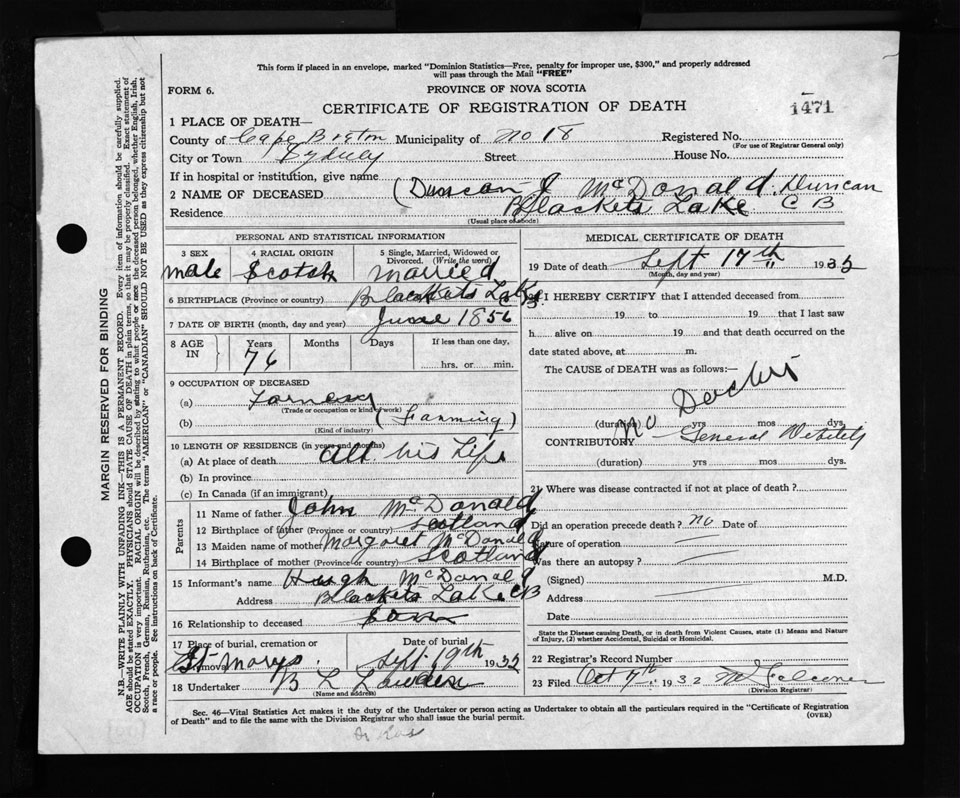 This form if placed in an envelope, marked "Dominion Statistics—Free, penalty for improper use, $300," and properly addressed
will pass through the Mail "FREE"
FORM 6.
PROVINCE OF NOVA SCOTIA
CERTIFICATE OF REGISTRATION OF DEATH
1471
1 PLACE OF DEATH—
County of Cape Breton Municipality of No 18 Registered No.
(For use of Registrar General only)
City or Town Sydney Street House No.
If in hospital or institution, give name
2 NAME OF DECEASED (Duncan J McDonald. Duncan
Residence Blackets Lake C B
(Usual place of abode)
PERSONAL AND STATISTICAL INFORMATION
3 SEX
male
4 RACIAL ORIGIN
Scotch
5 Single, Married, Widowed or
Divorced. (Write the word)
married
6 BIRTHPLACE (Province or country) Blackets Lake
7 DATE OF BIRTH (month, day and year) June 1856
8 AGE
IN
Years
76
Months
Days
If less than one day,
hrs. or min.
9 OCCUPATION OF DECEASED
(a)
(Trade or occupation or kind of work)
(b) (Farming)
(Kind of industry)
10 LENGTH OF RESIDENCE (in years and months)
(a) At place of death All his Life
(b) In province
(c) In Canada (if an immigrant)
Parents
11 Name of father John McDonald
12 Birthplace of father (Province or country) Scotland
13 Maiden name of mother Margaret McDonald
14 Birthplace of mother (Province or country) Scotland
15 Informant's name Hugh McDonald
Address Blackets Lake CB
16 Relationship to deceased Son
17 Place of burial, cremation or
removal St Marys.
Date of burial
Sept 19th 1932
18 Undertaker B L
(Name and address)
MEDICAL CERTIFICATE OF DEATH
19 Date of death Sept 17th " 1932
(Month, day and year)
I HEREBY CERTIFY that I attended deceased from
19 to 19 that I last saw
h alive on 19 and that death occurred on
date stated above, at m.
The CAUSE of DEATH was as follows:—
No Doctor
(duration) yrs mos dys.
CONTRIBUTORY General Debility
(duration) yrs mos dys.
21 Where was disease contracted if not at place of death?
Did an operation precede death? no Date of
Nature of operation
Was there an autopsy?
(Signed) M.D.
Address
Date
State the Disease causing Death, or in death from Violent Causes, state (1) Means and Nature
of Injury, (2) whether Accidental, Suicidal or Homicidal.
22 Registrar's Record Number
23 Filed Oct 7th " 1932
(Division Registrar)
Sec. 46—Vital Statistics Act makes it the duty of the Undertaker or person acting as Undertaker to obtain all the particulars required in the "Certificate of Registration
of Death" and to file the same with the Division Registrar who shall issue the burial permit.
(OVER)
MARGIN RESERVED FOR BINDING
N.B.—WRITE PLAINLY WITH UNFADING INK—THIS IS A PERMANENT RECORD. Every item of information should be carefully supplied.
AGE should be stated EXACTLY. PHYSICIANS should STATE CAUSE OF DEATH in plain terms, so that it may be properly classified. Exact statement of
OCCUPATION is very important. RACIAL ORIGIN will be described by stating to what people or race the deceased person belonged, whether English, Irish,
Scotch, French, German, Russian, Ruthenian, etc. The terms "AMERICAN" or "CANADIAN" SHOULD NOT BE USED as they express citizenship but not
a race or people. See instructions on back of Certificate.